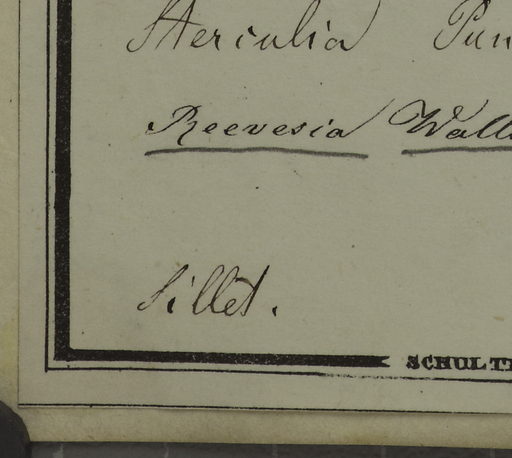 Sterculia Pun
Reevesia Wall
Sillet.
SCHULT